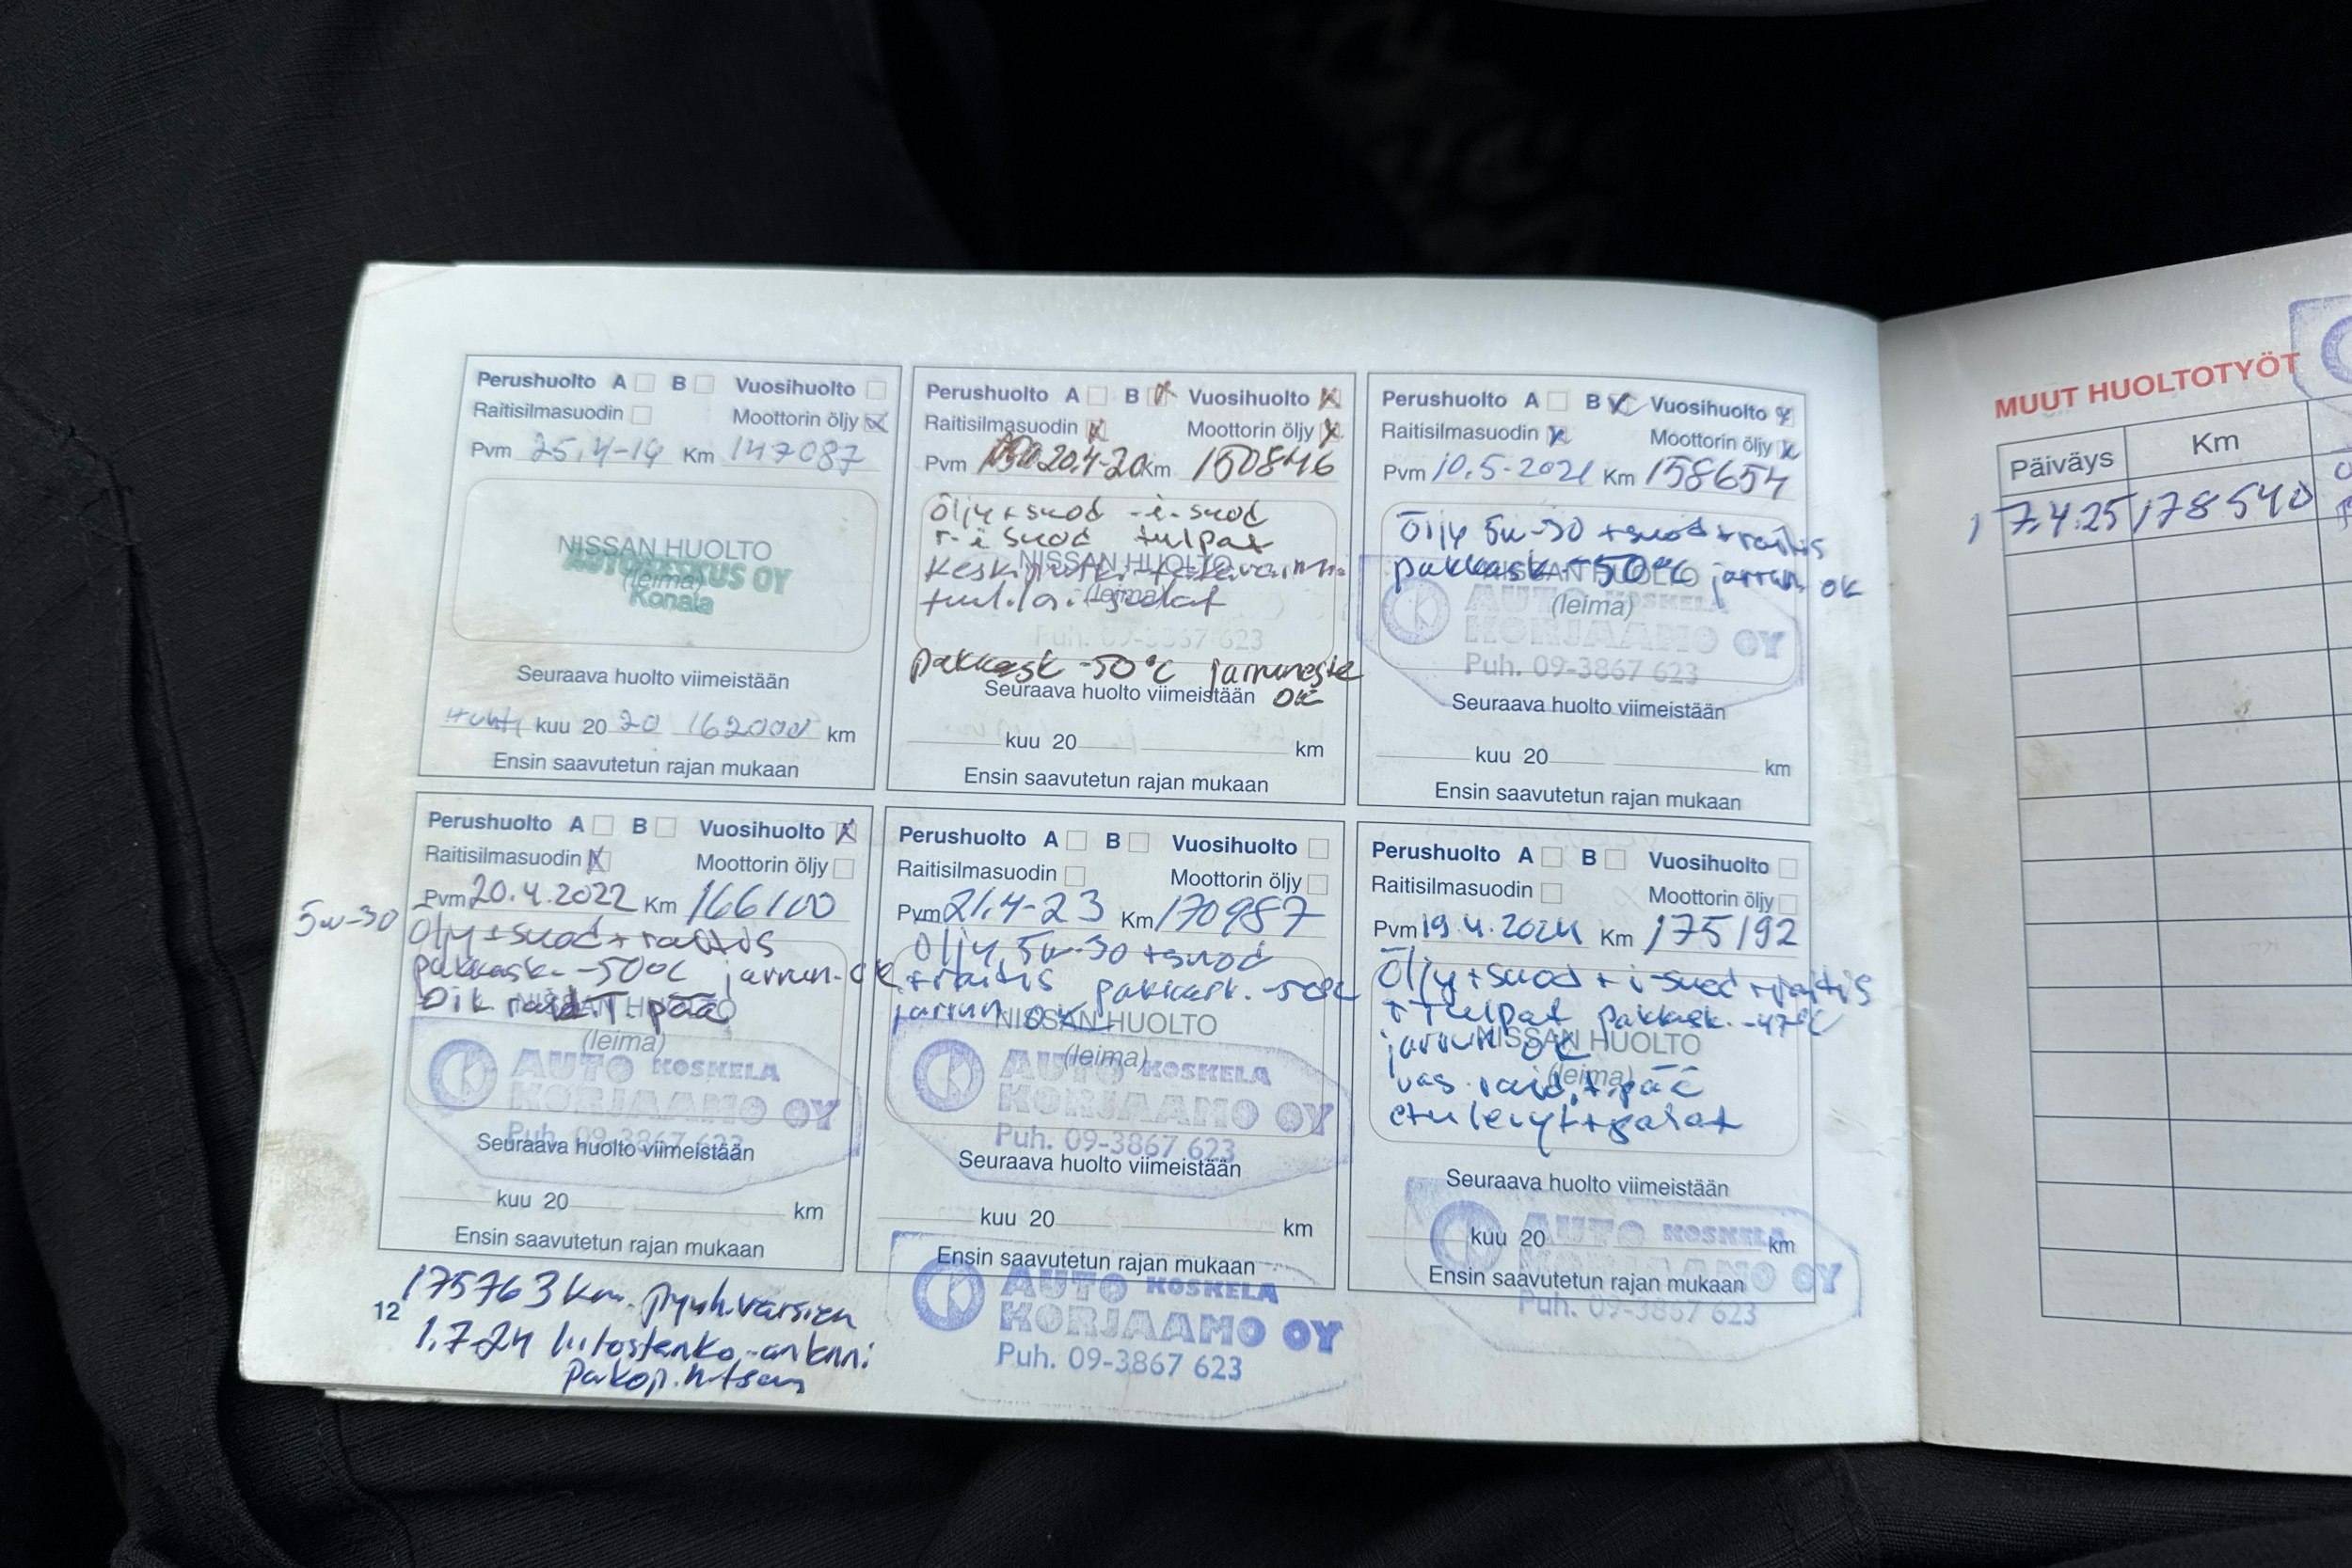 Perushuolto A B Vuosihuolto
Raitisilmasuodin Moottorin öljy
Pvm 25.4-19 Km 147087
NISSAN HUOLTO
(leima)
AUTOKESKUS OY
Konala
Seuraava huolto viimeistään
Huhti kuu 20 20 162000 km
Ensin saavutetun rajan mukaan
Perushuolto A B Vuosihuolto
Raitisilmasuodin Moottorin öljy
Pvm 20.4-20 Km 150846
Öljy + suod -i-suod
r-i suod tulpat
NISSAN HUOLTO
(leima)
Puh. 09-3867 623
pakkask -50°C jarruneste
Seuraava huolto viimeistään OK
kuu 20 km
Ensin saavutetun rajan mukaan
Perushuolto A B Vuosihuolto
Raitisilmasuodin Moottorin öljy
Pvm 10.5-2021 Km 158654
Öljy 5w-30 +suod+raitis
pakkask -50°C jarrun ok
NISSAN HUOLTO
(leima)
AUTO KOSKELA
KORJAAMO OY
Puh. 09-3867 623
Seuraava huolto viimeistään
kuu 20 km
Ensin saavutetun rajan mukaan
Perushuolto A B Vuosihuolto
Raitisilmasuodin Moottorin öljy
Pvm 20.4.2022 Km 166100
5w-30 Öljy+suod+raitis
pakkask. -50°C jarrun. ok
Oik raidT pää
NISSAN HUOLTO
(leima)
AUTO KOSKELA
KORJAAMO OY
Puh. 09-3867 623
Seuraava huolto viimeistään
kuu 20 km
Ensin saavutetun rajan mukaan
Perushuolto A B Vuosihuolto
Raitisilmasuodin Moottorin öljy
Pvm 21.4-23 Km 170987
Öljy 5w-30 +suod
+raitis pakkask. -50°C
jarrun OK
NISSAN HUOLTO
(leima)
AUTO KOSKELA
KORJAAMO OY
Puh. 09-3867 623
Seuraava huolto viimeistään
kuu 20 km
Ensin saavutetun rajan mukaan
AUTO KOSKELA
KORJAAMO OY
Puh. 09-3867 623
Perushuolto A B Vuosihuolto
Raitisilmasuodin Moottorin öljy
Pvm 19.4.2024 Km 175192
Öljy+suod + i-suod +raitis
+ Tulpat pakkask. -47°C
jarrun OK
NISSAN HUOLTO
(leima)
vas. raid.+.pää
etulevyt+palat
Seuraava huolto viimeistään
kuu 20 km
Ensin saavutetun rajan mukaan
AUTO KOSKELA
KORJAAMO OY
Puh. 09-3867 623
175763 km. pyyh.varsien
12
1.7-24
MUUT HUOLTOTYÖT
Päiväys Km
17.4.25 178540